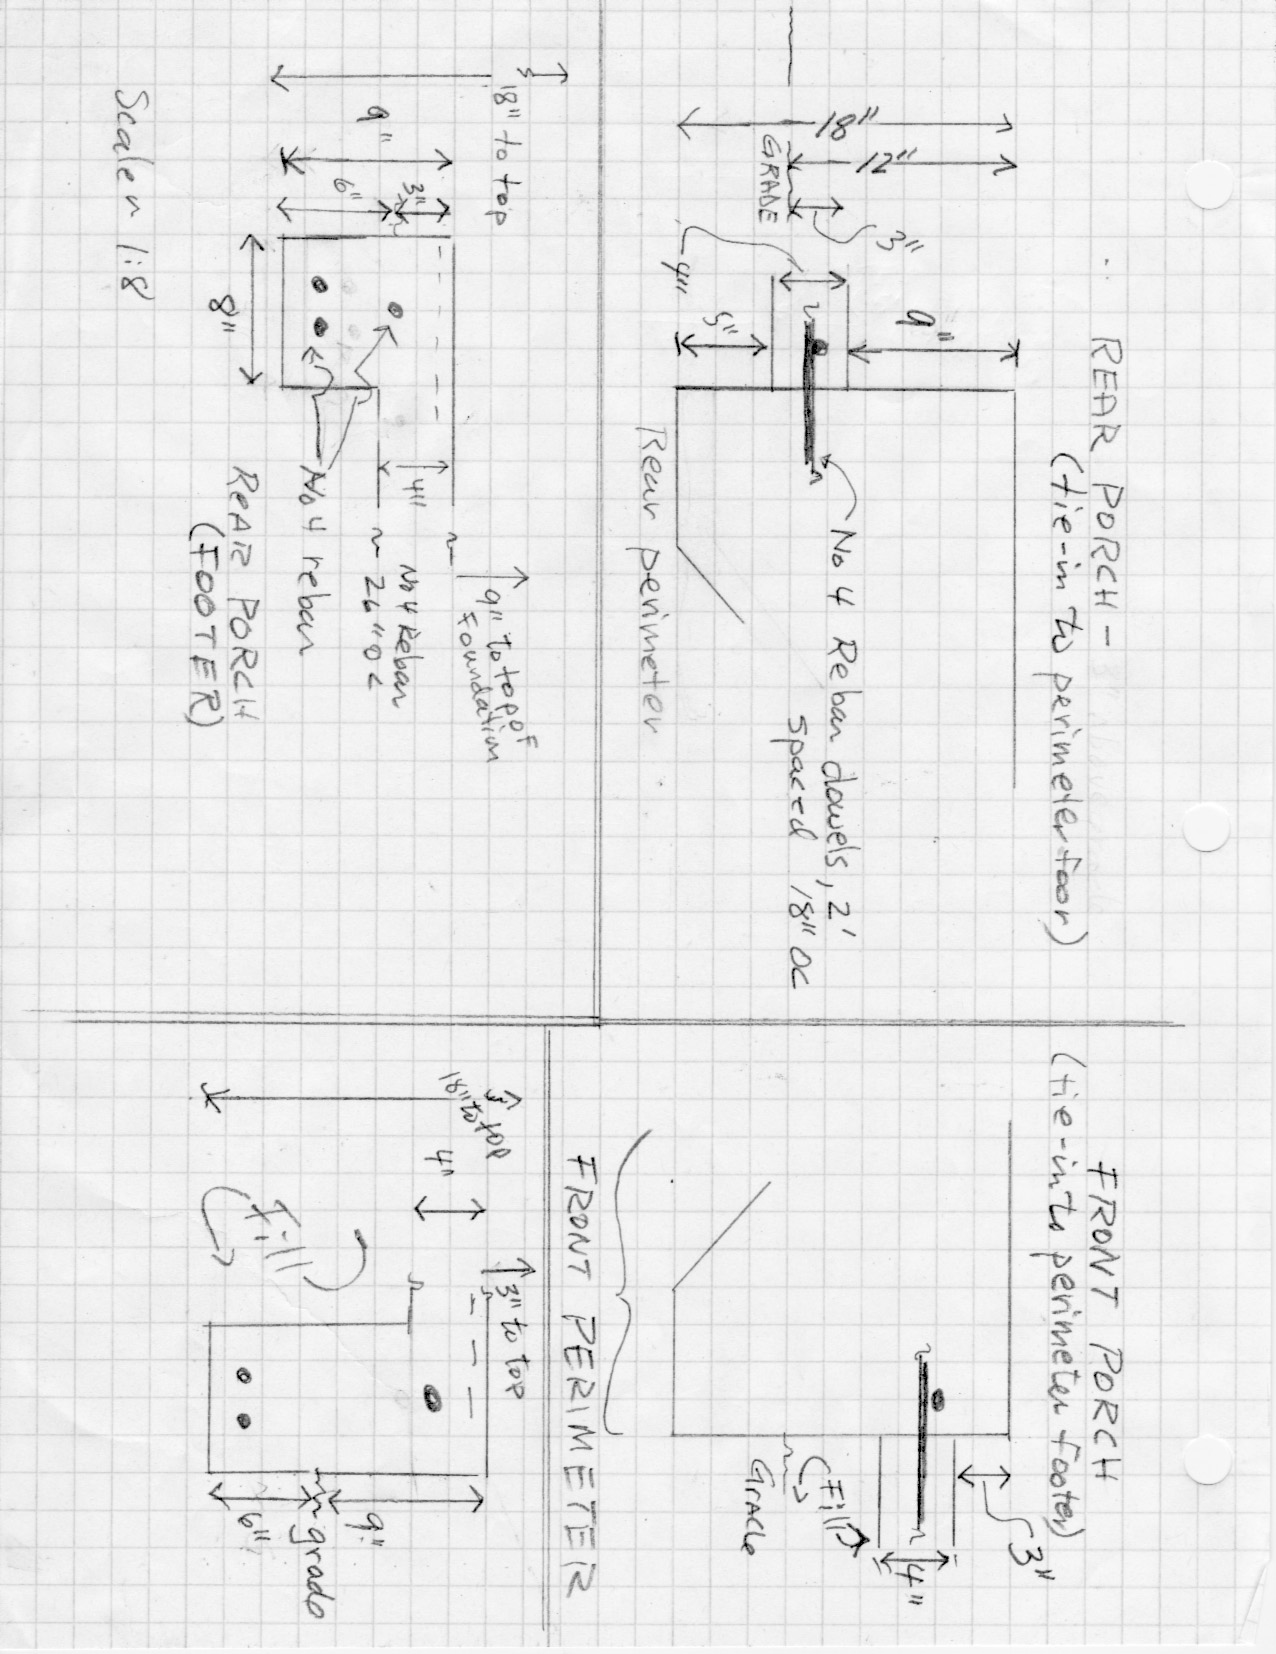 REAR PORCH -
(tie-in to perimeter foor)
18"
12"
GRADE
3"
4"
5"
9"
No 4 Rebar dowels, 2'
spaced 18" OC
Rear perimeter
18" to top
9"
6"
3"
8"
4"
No 4 Rebar
~ 26" OC
9" to top of
Foundation
No 4 rebar
REAR PORCH
(FOOTER)
Scale ~ 1:8
FRONT PORCH
(tie-in to perimeter footer)
3"
4"
Fill
Grade
FRONT PERIMETER
18" to top
4"
3" to top
Fill
9"
6"
grade